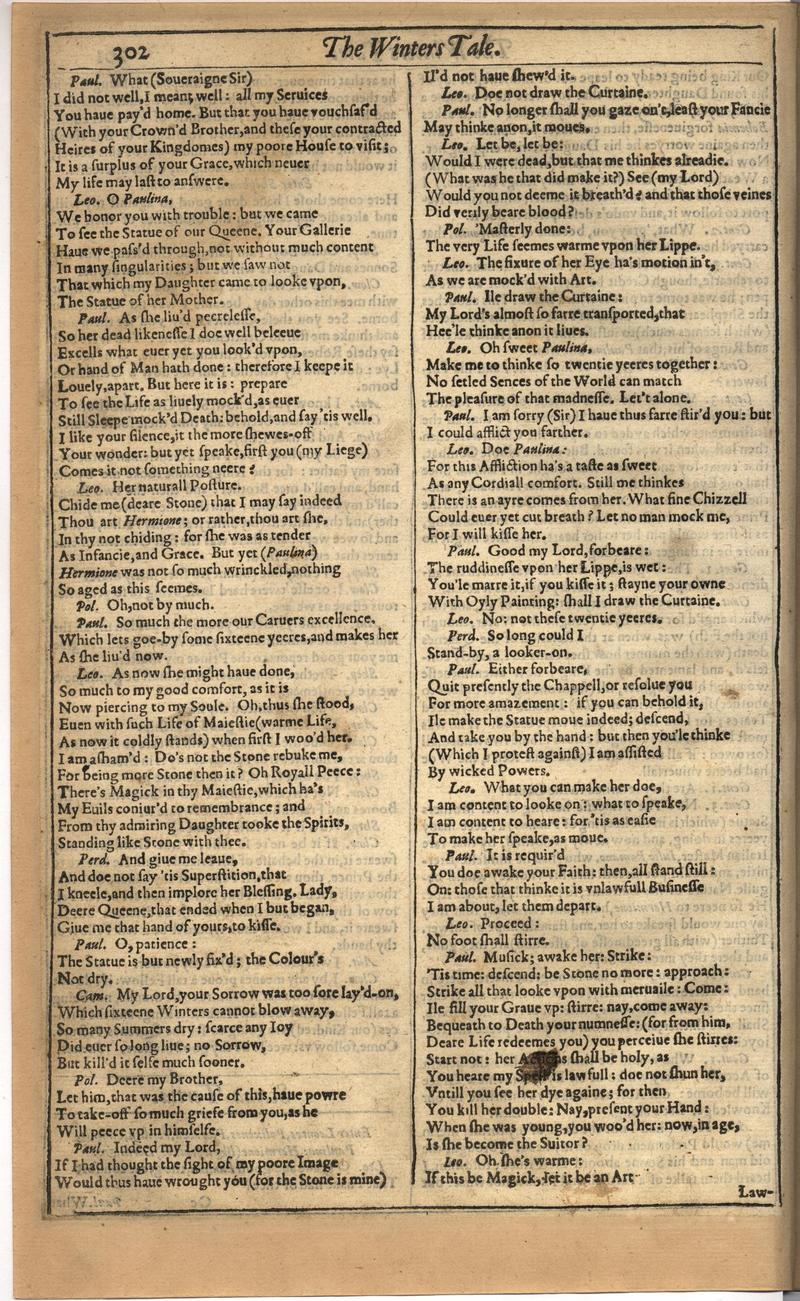 302
The Winters Tale.
Paul. What (Soueraigne Sir)
I did not well, I meant well: all my Seruices
You haue pay'd home. But that you haue vouchsaf'd
(With your Crown'd Brother, and these your contracted
Heires of your Kingdomes) my poore House to visit;
It is a surplus of your Grace, which neuer
My life may last to answere.
Leo. O Paulina,
We honor you with trouble: but we came
To see the Statue of our Queene. Your Gallerie
Haue we pass'd through, not without much content
In many singularities; but we saw not
That which my Daughter came to looke vpon,
The Statue of her Mother.
Paul. As she liu'd peerelesse,
So her dead likenesse I doe well beleeue
Excells what euer yet you look'd vpon,
Or hand of Man hath done: therefore I keepe it
Louely, apart. But here it is: prepare
To see the Life as liuely mock'd, as euer
Still Sleepe mock'd Death: behold, and say 'tis well.
I like your silence, it the more shewes-off
Your wonder: but yet speake, first you (my Liege)
Comes it not something neere?
Leo. Her naturall Posture.
Chide me (deare Stone) that I may say indeed
Thou art Hermione; or rather, thou art she,
In thy not chiding: for she was as tender
As Infancie, and Grace. But yet (Paulina)
Hermione was not so much wrinckled, nothing
So aged as this seemes.
Pol. Oh, not by much.
Paul. So much the more our Caruers excellence,
Which lets goe-by some sixteene yeeres, and makes her
As she liu'd now.
Leo. As now she might haue done,
So much to my good comfort, as it is
Now piercing to my Soule. Oh, thus she stood,
Euen with such Life of Maiestie (warme Life,
As now it coldly stands) when first I woo'd her.
I am asham'd: Do's not the Stone rebuke me,
For being more Stone then it? Oh Royall Peece:
There's Magick in thy Maiestie, which ha's
My Euils coniur'd to remembrance; and
From thy admiring Daughter tooke the Spirits,
Standing like Stone with thee.
Perd. And giue me leaue,
And doe not say 'tis Superstition, that
I kneele, and then implore her Blessing. Lady,
Deere Queene, that ended when I but began,
Giue me that hand of yours, to kisse.
Paul. O, patience:
The Statue is but newly fix'd; the Colour's
Not dry.
Cam. My Lord, your Sorrow was too sore lay'd-on,
Which sixteene Winters cannot blow away,
So many Summers dry: scarce any Ioy
Did euer so long liue; no Sorrow,
But kill'd it selfe much sooner.
Pol. Deere my Brother,
Let him, that was the cause of this, haue powre
To take-off so much griefe from you, as he
Will peece vp in himselfe.
Paul. Indeed my Lord,
If I had thought the sight of my poore Image
Would thus haue wrought you (for the Stone is mine)
Il'd not haue shew'd it.
Leo. Doe not draw the Curtaine.
Paul. No longer shall you gaze on't, least your Fancie
May thinke anon, it moues.
Leo. Let be, let be:
Would I were dead, but that me thinkes alreadie.
(What was he that did make it?) See (my Lord)
Would you not deeme it breath'd? and that those veines
Did verily beare blood?
Pol. 'Masterly done:
The very Life seemes warme vpon her Lippe.
Leo. The fixure of her Eye ha's motion in't,
As we are mock'd with Art.
Paul. Ile draw the Curtaine:
My Lord's almost so farre transported, that
Hee'le thinke anon it liues.
Leo. Oh sweet Paulina,
Make me to thinke so twentie yeeres together:
No setled Sences of the World can match
The pleasure of that madnesse. Let't alone.
Paul. I am sorry (Sir) I haue thus farre stir'd you: but
I could afflict you farther.
Leo. Doe Paulina:
For this Affliction ha's a taste as sweet
As any Cordiall comfort. Still me thinkes
There is an ayre comes from her. What fine Chizzell
Could euer yet cut breath? Let no man mock me,
For I will kisse her.
Paul. Good my Lord, forbeare:
The ruddinesse vpon her Lippe, is wet:
You'le marre it, if you kisse it; stayne your owne
With Oyly Painting: shall I draw the Curtaine.
Leo. No: not these twentie yeeres.
Perd. So long could I
Stand-by, a looker-on.
Paul. Either forbeare,
Quit presently the Chappell, or resolue you
For more amazement: if you can behold it,
Ile make the Statue moue indeed; descend,
And take you by the hand: but then you'le thinke
(Which I protest against) I am assisted
By wicked Powers.
Leo. What you can make her doe,
I am content to looke on: what to speake,
I am content to heare: for 'tis as easie
To make her speake, as moue.
Paul. It is requir'd
You doe awake your Faith: then, all stand still:
On: those that thinke it is vnlawfull Businesse
I am about, let them depart.
Leo. Proceed:
No foot shall stirre.
Paul. Musick; awake her: Strike:
'Tis time: descend: be Stone no more: approach:
Strike all that looke vpon with meruaile: Come:
Ile fill your Graue vp: stirre: nay, come away:
Bequeath to Death your numnesse: (for from him,
Deare Life redeemes you) you perceiue she stirres:
Start not: her shall be holy, as
You heare my Spell is lawfull: doe not shun her,
Vntill you see her dye againe; for then
You kill her double: Nay, present your Hand:
When she was young, you woo'd her: now, in age,
Is she become the Suitor?
Leo. Oh she's warme:
If this be Magick, let it be an Art
Law-